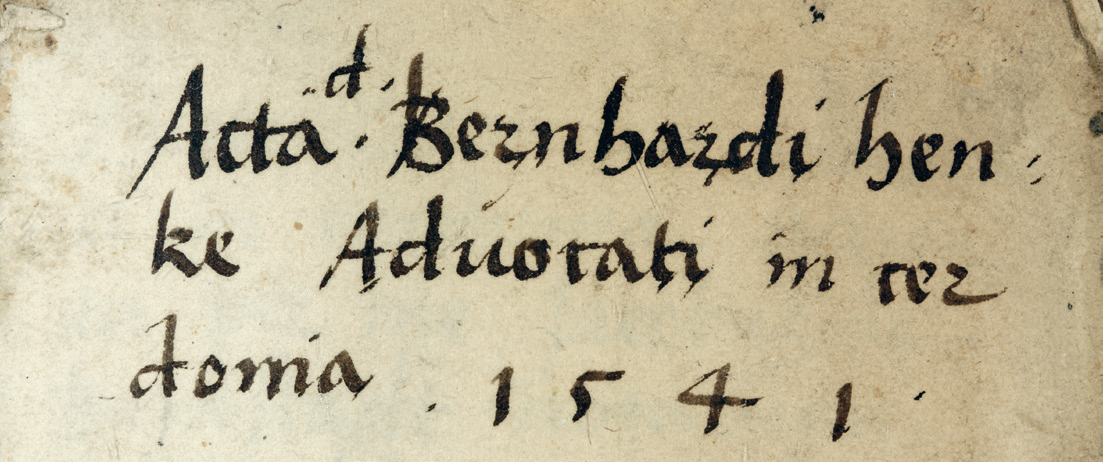 Acta d. Bernhardi hen-
ke Aduocati in cer
donia . 1541.